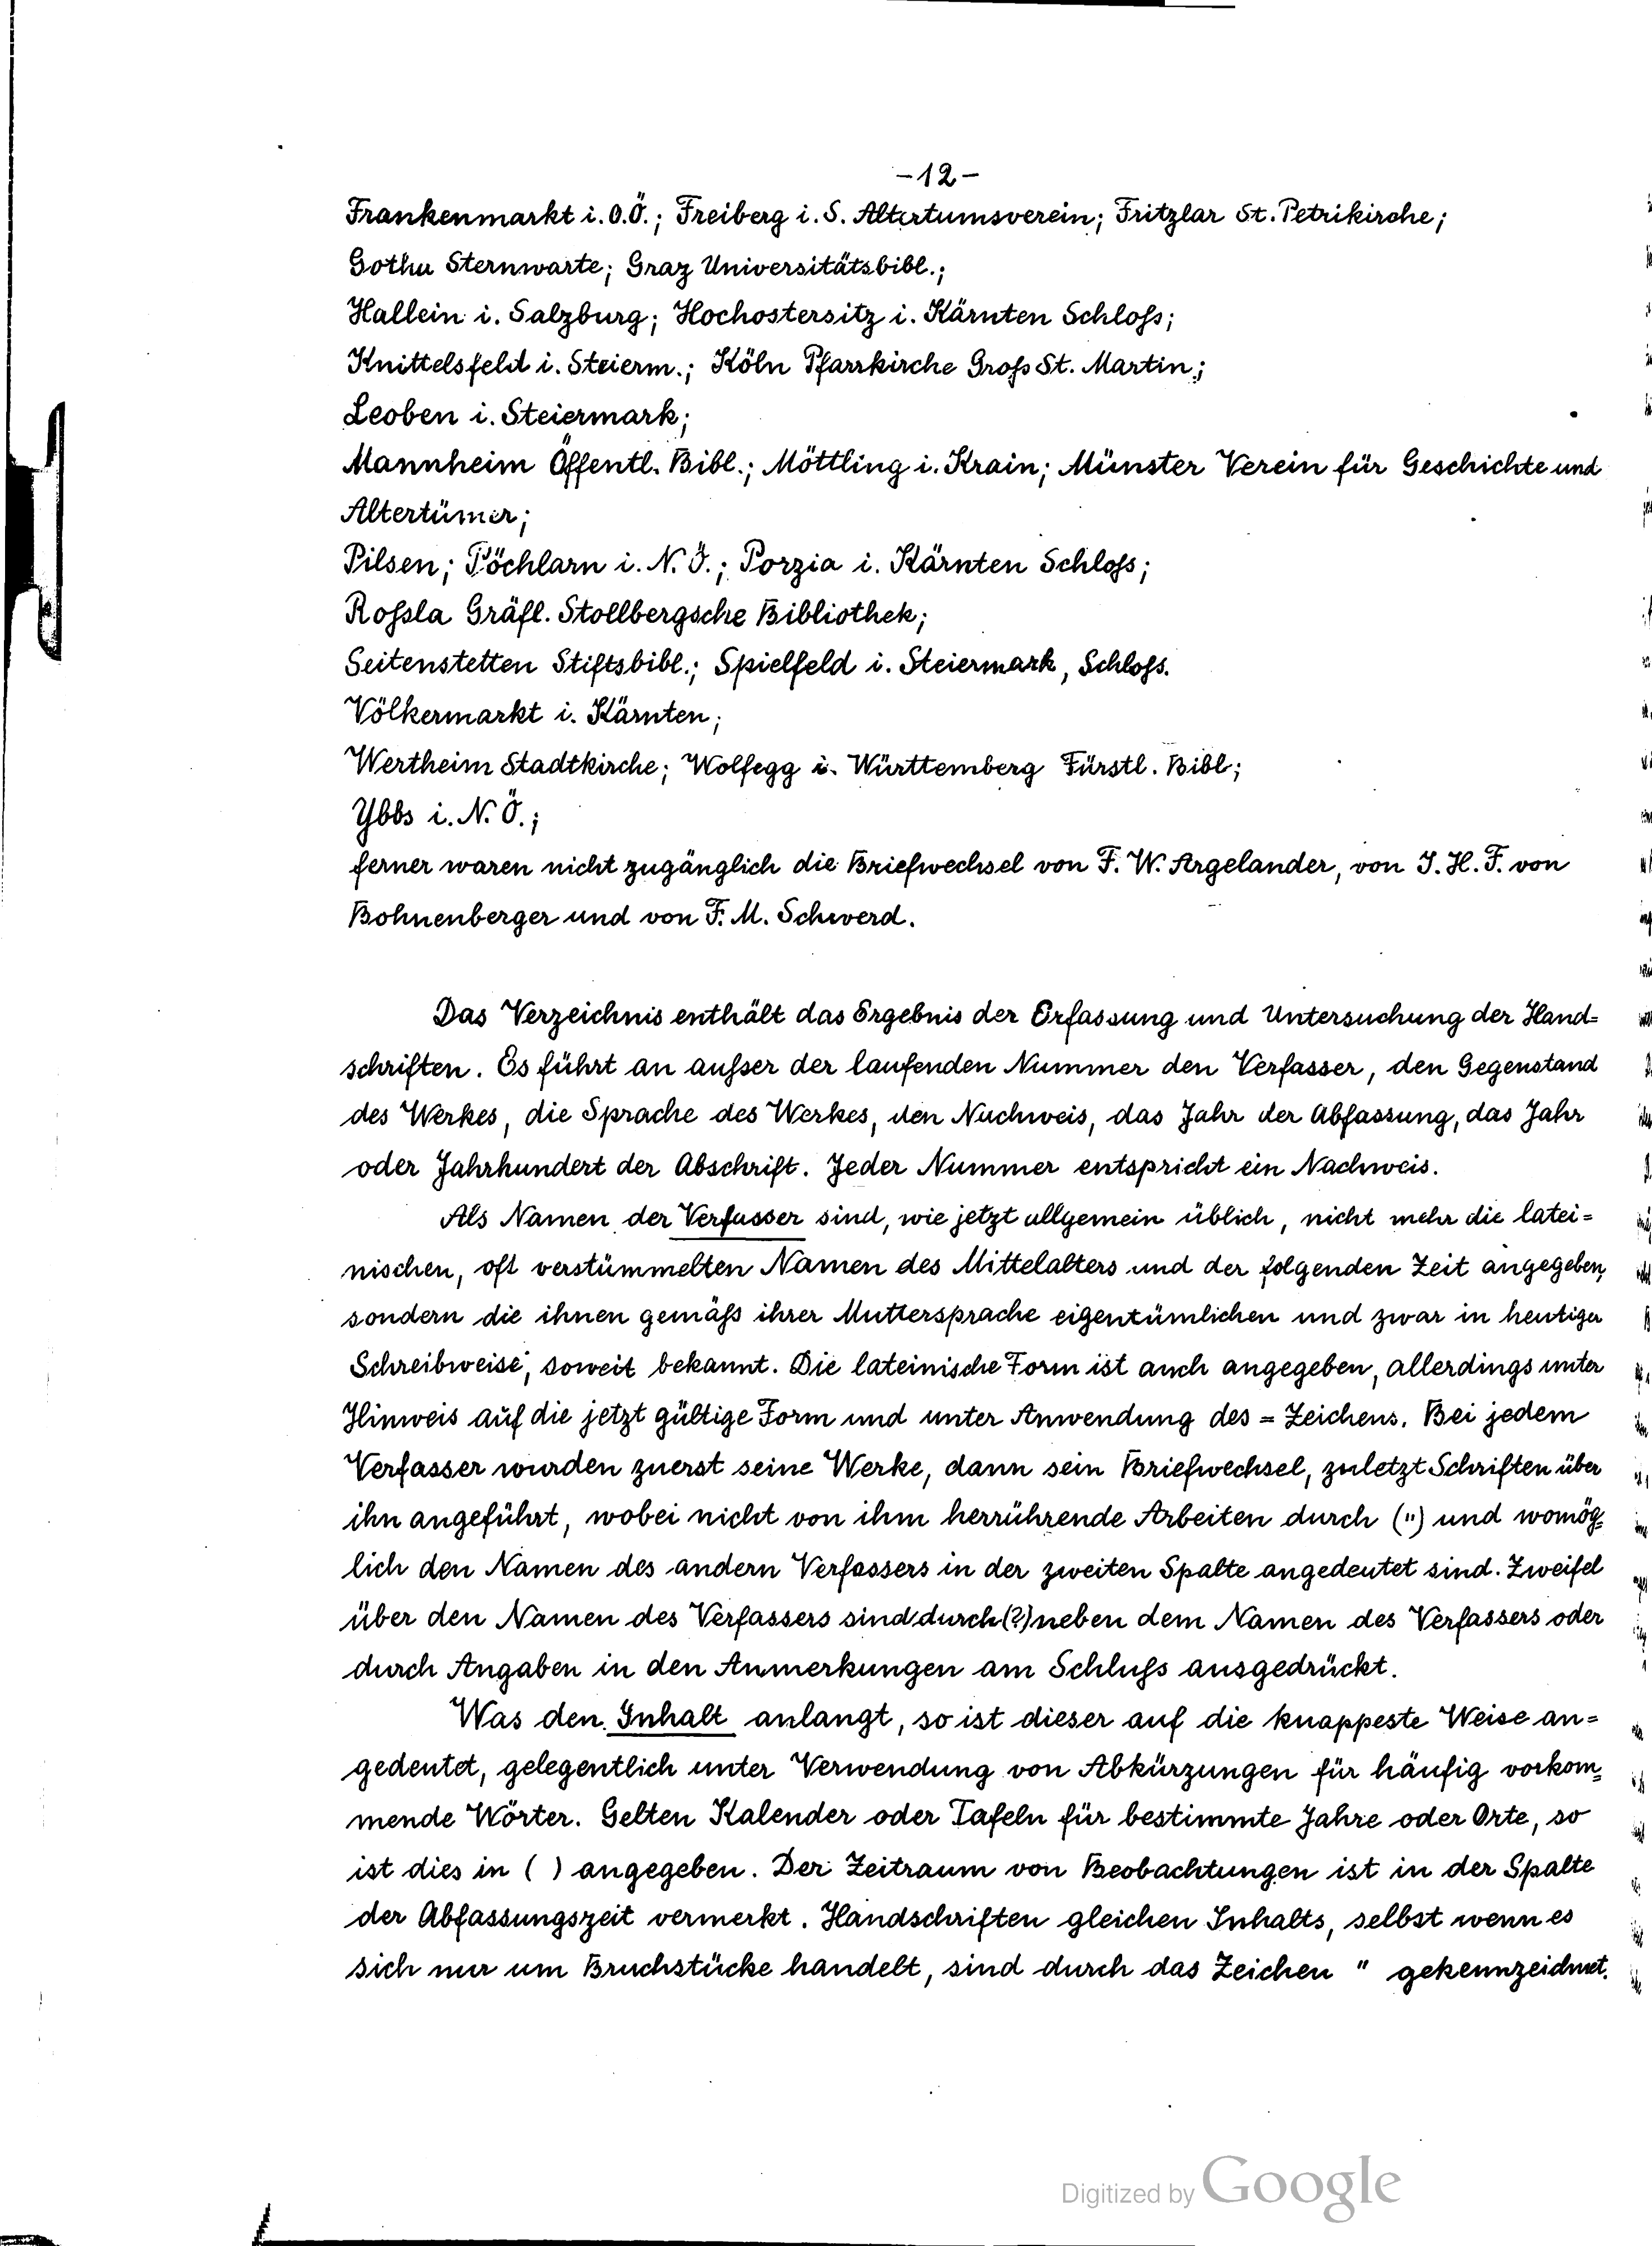 -12-
Frankenmarkt i. O.Ö.; Freiberg i. S. Altertumsverein; Fritzlar St. Petrikirche;
Gotha Sternwarte; Graz Universitätsbibl.;
Hallein i. Salzburg; Hochostersitz i. Kärnten Schloß;
Knittelsfeld i. Steierm.; Köln Pfarrkirche Groß St. Martin;
Leoben i. Steiermark;
Mannheim Öffentl. Bibl.; Möttling i. Krain; Münster Verein für Geschichte und
Altertümer;
Pilsen; Pöchlarn i. N. Ö.; Porzia i. Kärnten Schloß;
Roßla Gräfl. Stollbergsche Bibliothek;
Seitenstetten Stiftsbibl.; Spielfeld i. Steiermark, Schloß.
Völkermarkt i. Kärnten;
Wertheim Stadtkirche; Wolfegg i. Württemberg Fürstl. Bibl;
Ybbs i. N. Ö.;
ferner waren nicht zugänglich die Briefwechsel von F. W. Argelander, von J. H. F. von
Bohnenberger und von F. M. Schwerd.
Das Verzeichnis enthält das Ergebnis der Erfassung und Untersuchung der Hand=
schriften. Es führt an außer der laufenden Nummer den Verfasser, den Gegenstand
des Werkes, die Sprache des Werkes, den Nachweis, das Jahr der Abfassung, das Jahr
oder Jahrhundert der Abschrift. Jeder Nummer entspricht ein Nachweis.
Als Namen der Verfasser sind, wie jetzt allgemein üblich, nicht mehr die latei=
nischen, oft verstümmelten Namen des Mittelalters und der folgenden Zeit angegeben,
sondern die ihnen gemäß ihrer Muttersprache eigentümlichen und zwar in heutiger
Schreibweise, soweit bekannt. Die lateinische Form ist auch angegeben, allerdings unter
Hinweis auf die jetzt gültige Form und unter Anwendung des = Zeichens. Bei jedem
Verfasser wurden zuerst seine Werke, dann sein Briefwechsel, zuletzt Schriften über
ihn angeführt, wobei nicht von ihm herrührende Arbeiten durch (") und womög=
lich den Namen des andern Verfassers in der zweiten Spalte angedeutet sind. Zweifel
über den Namen des Verfassers sind durch (?) neben dem Namen des Verfassers oder
durch Angaben in den Anmerkungen am Schluß ausgedrückt.
Was den Inhalt anlangt, so ist dieser auf die knappeste Weise an=
gedeutet, gelegentlich unter Verwendung von Abkürzungen für häufig vorkom=
mende Wörter. Gelten Kalender oder Tafeln für bestimmte Jahre oder Orte, so
ist dies in ( ) angegeben. Der Zeitraum von Beobachtungen ist in der Spalte
der Abfassungszeit vermerkt. Handschriften gleichen Inhalts, selbst wenn es
sich nur um Bruchstücke handelt, sind durch das Zeichen " gekennzeichnet.
Digitized by Google